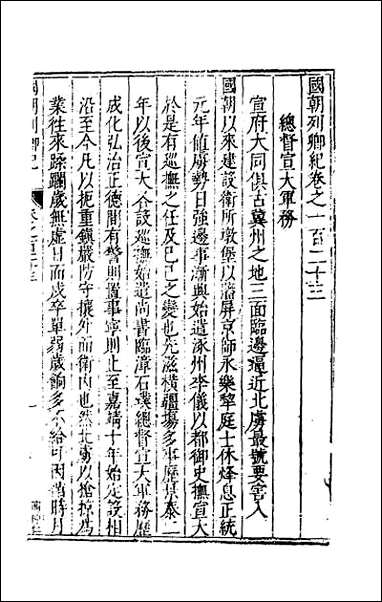 國朝列卿紀卷之一百二十三
總督宣大軍務
宣府大同俱古冀州之地三面臨邊逼近北虜最號要害入
國朝以來建設衛所墩堡以藩屏京師永樂犂庭士休烽息正統
元年值虜勢日強邊事漸興始遣涿州李儀以都御史撫宣大
於是有巡撫之任及己巳之變也先滋橫疆場多事歷景泰二
年以後宣大分設巡撫始遣尚書臨漳石璞總督宣大軍務歷
成化弘治正德間有警則置事寧則止至嘉靖十年始定設相
沿至今凡以扼重鎮嚴防守攘外而衛內也然北虜以搶掠為
業往來蹂躪歲無虛日而戍卒單弱歲餉多不給可因循時月
國朝列卿紀
卷之一百二十三
一